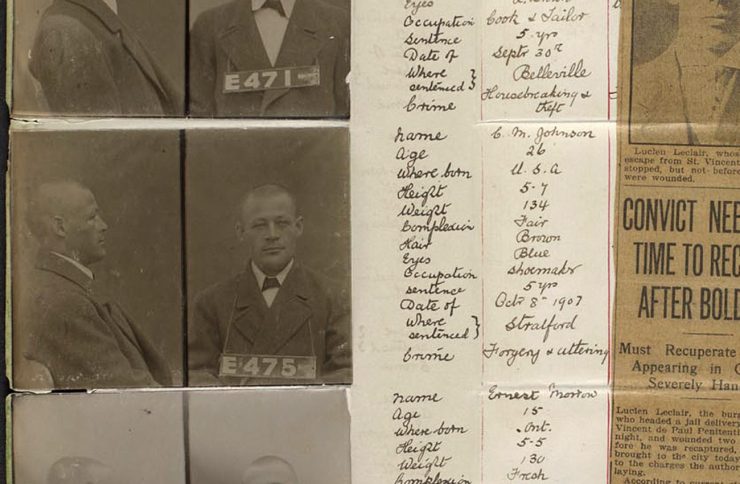 E471
Eyes
Occupation Cook & Tailor
Sentence 5 yrs
Date of Septr 30th
Where
sentenced } Belleville
Crime Housebreaking &
theft
E475
Name C. M. Johnson
Age 26
Where born U.S.A
Height 5-7
Weight 134
Complexion Fair
Hair Brown
Eyes Blue
Occupation Shoemakr
Sentence 5 yrs
Date of Octr 8th 1907
where
sentenced } Stratford
Crime Forgery & uttering
Name Ernest Morton
Age 15
Where born Ont.
Height 5-5
Weight 130
Complexion Fresh
Lucien Leclair, whose
escape from St. Vincent
stopped, but not before
were wounded.
CONVICT NEE
TIME TO REC
AFTER BOLD
Must Recuperate
Appearing in C
Severely Han
Lucien Leclair, the bur
who headed a jail delivery
Vincent de Paul Penitenti
night, and wounded two
fore he was recaptured,
brought to the city today
to the charges the author
laying.